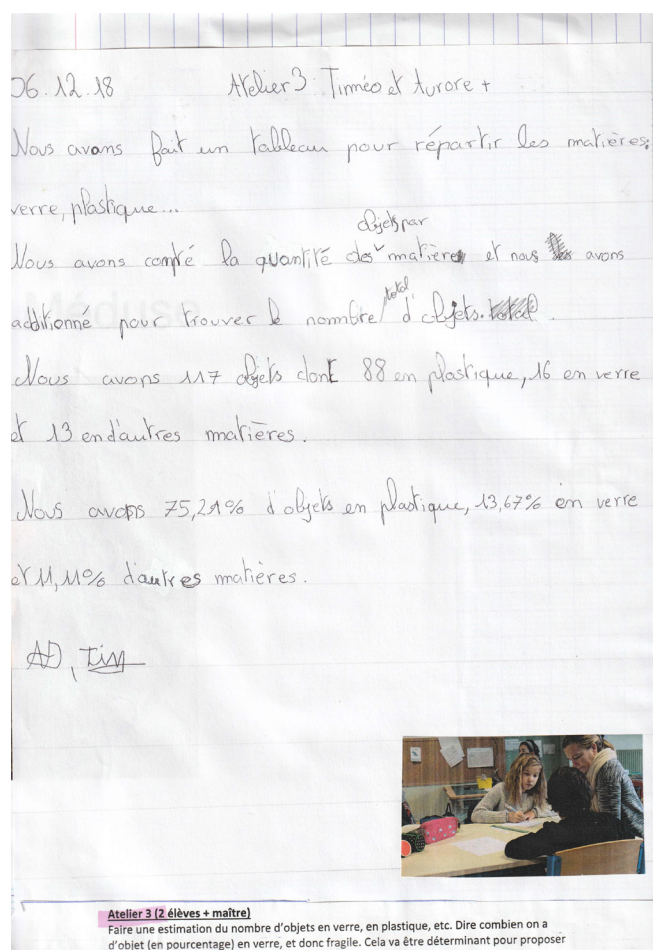 06.12.18 Atelier 3 : Timéo et Aurore +
Nous avons fait un tableau pour répartir les matières:
verre, plastique...
objets par
Nous avons compté la quantité des matière et nous avons
total
additionné pour trouver le nombre d'objets.
Nous avons 117 objets dont 88 en plastique, 16 en verre
et 13 en d'autres matières.
Nous avons 75,21% d'objets en plastique, 13,67% en verre
et 11,11% d'autres matières.
AD, Tim
Atelier 3 (2 élèves + maître)
Faire une estimation du nombre d'objets en verre, en plastique, etc. Dire combien on a
d'objet (en pourcentage) en verre, et donc fragile. Cela va être déterminant pour proposer